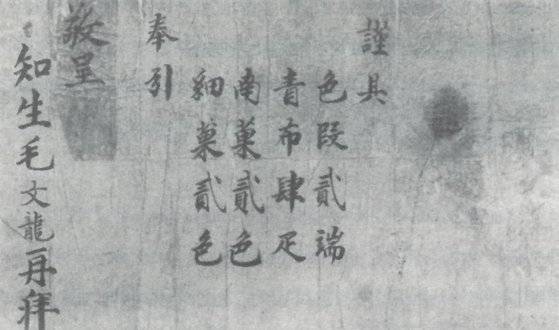 謹具
色段貳端
青布肆疋
南菓貳色
細菓貳色
奉引
敬呈
知生毛文龍再拜